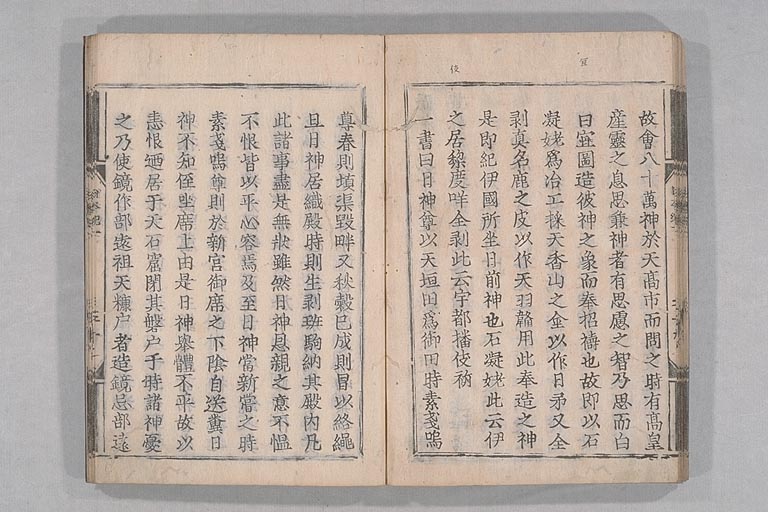 故會八十萬神於天高市而問之時有高皇
産靈之息思兼神者有思慮之智乃思而白
曰宜圖造彼神之象而奉招禱也故即以石
凝姥爲冶工採天香山之金以作日矛又全
剥真名鹿之皮以作天羽鞴用此奉造之神
是即紀伊國所坐日前神也石凝姥此云伊
之居梨度咩全剥此云宇都播伎
一書曰日神尊以天垣田爲御田時素戔嗚
尊春則塡渠毀畔又秋穀已成則冒以絡繩
且日神居織殿時則生剥斑駒納其殿内凡
此諸事盡是無狀雖然日神恩親之意不慍
不恨皆以平心容焉及至日神當新嘗之時
素戔嗚尊則於新宮御席之下陰自送糞日
神不知徑坐席上由是日神擧體不平故以
恚恨廼居于天石窟閉其磐戸于時諸神憂
之乃使鏡作部遠祖天糠戸者造鏡忌部遠